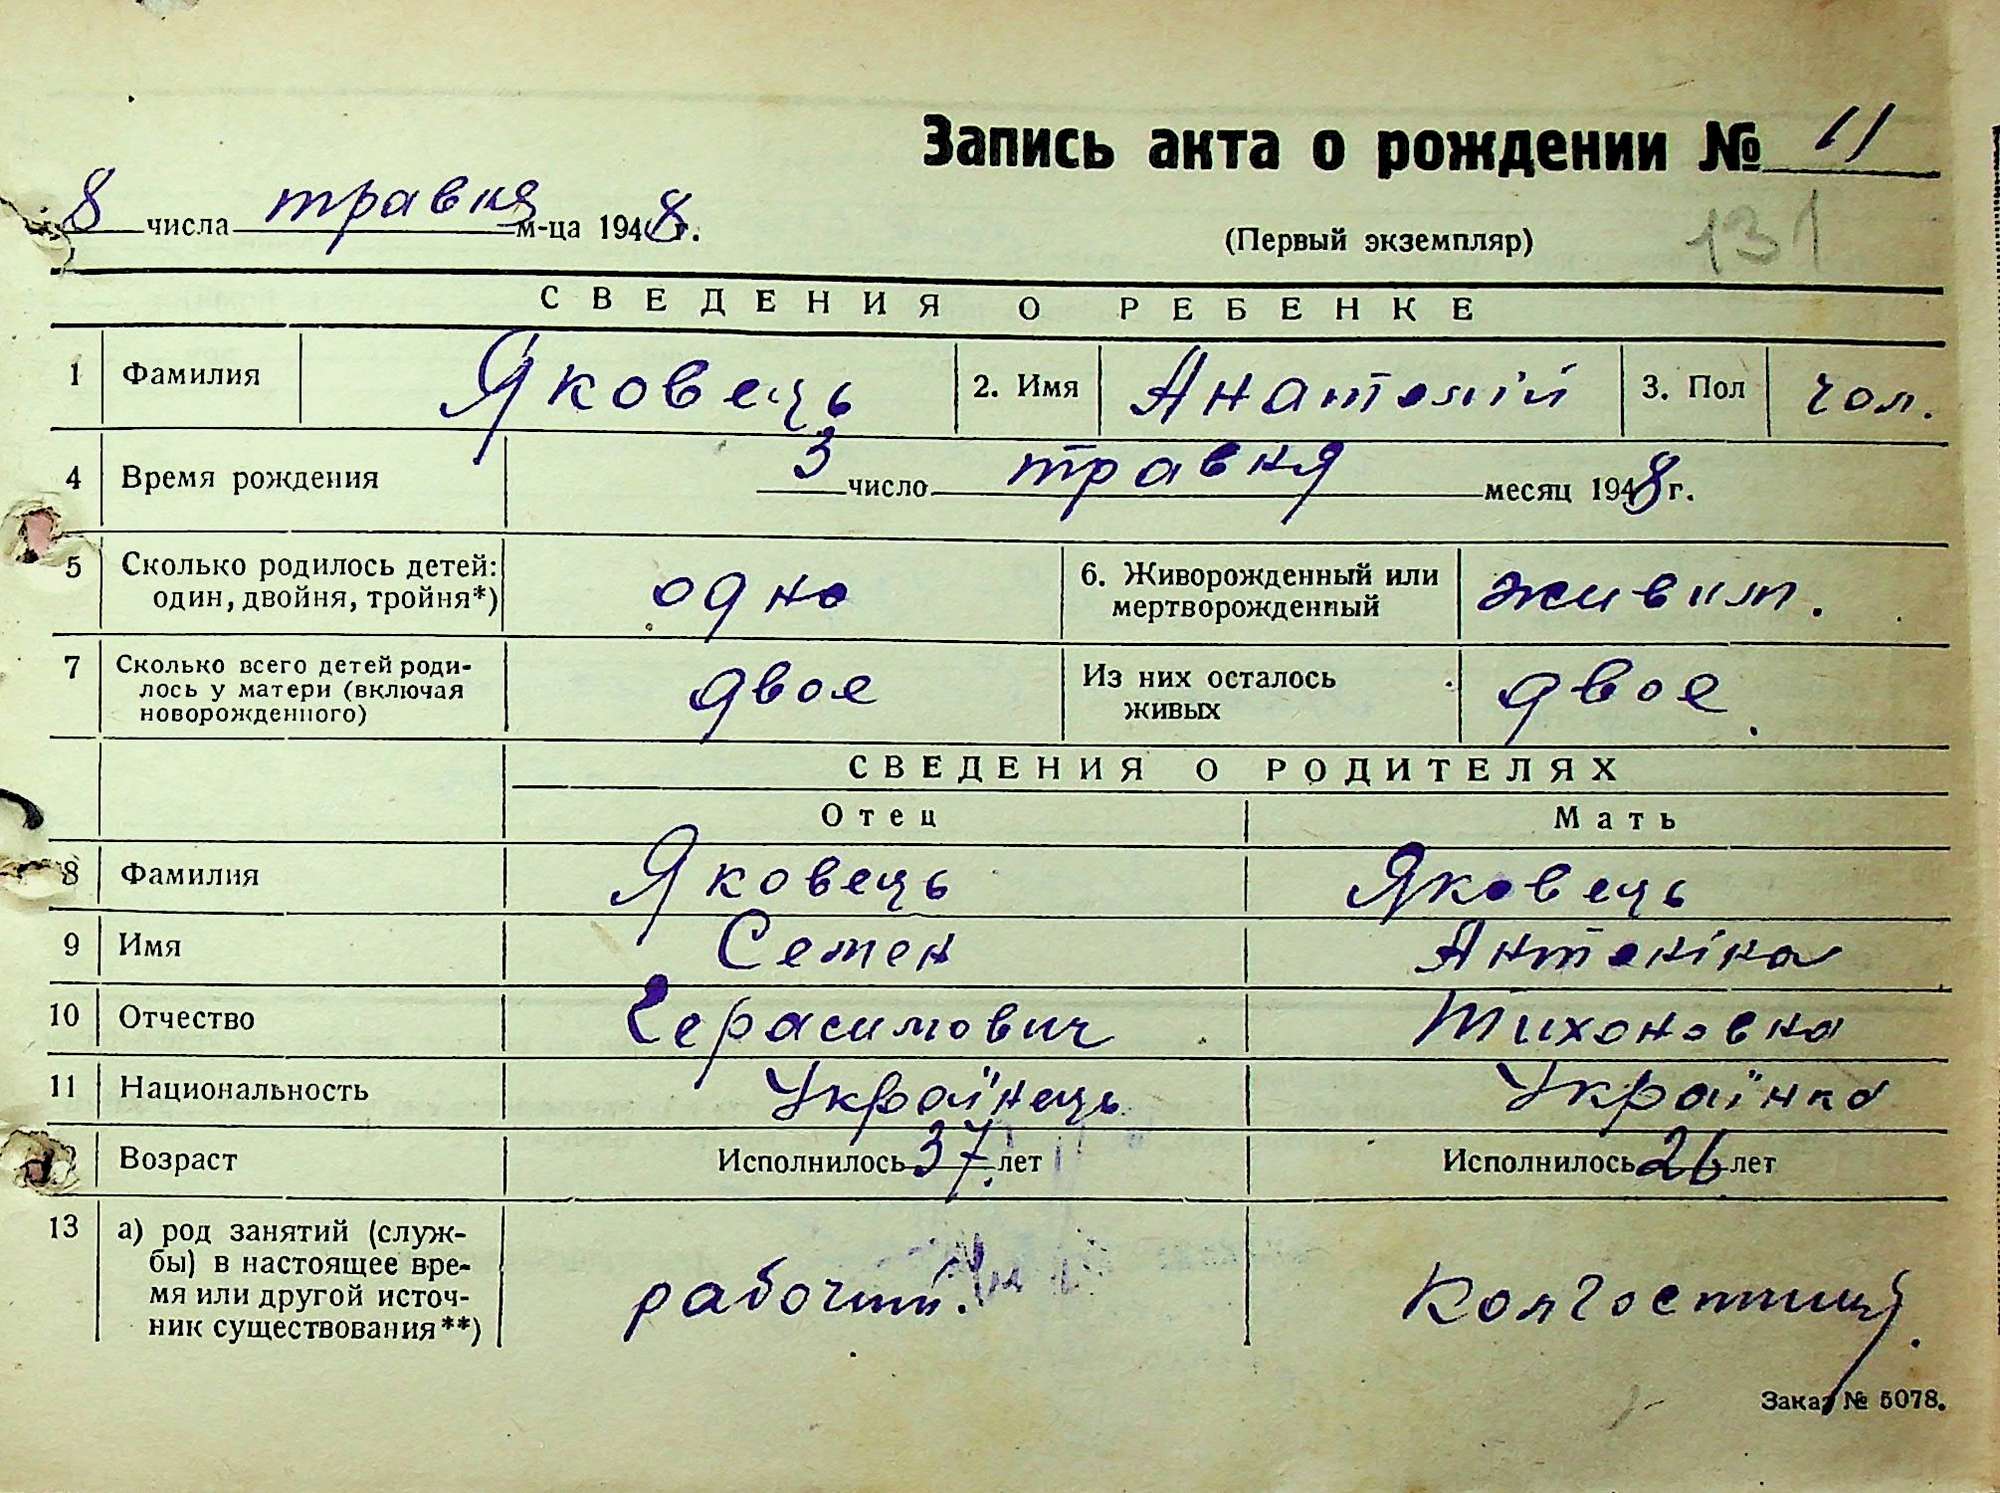 Запись акта о рождении № 11
8 числа травня м-ца 1948 г.
(Первый экземпляр) 131
СВЕДЕНИЯ О РЕБЕНКЕ
1 Фамилия Яковець 2. Имя Анатолій 3. Пол чол.
4 Время рождения 3 число травня месяц 1948 г.
5 Сколько родилось детей: один, двойня, тройня*) одно 6. Живорожденный или мертворожденный живим.
7 Сколько всего детей роди-
лось у матери (включая
новорожденного) двое Из них осталось
живых двое.
СВЕДЕНИЯ О РОДИТЕЛЯХ
Отец Мать
8 Фамилия Яковець Яковець
9 Имя Семен Антоніна
10 Отчество Герасимович Тихоновна
11 Национальность Українець Українка
Возраст Исполнилось 37 лет Исполнилось 26 лет
13 а) род занятий (служ-
бы) в настоящее вре-
мя или другой источ-
ник существования**) рабочий. Колгоспниця.
Заказ № 5078.